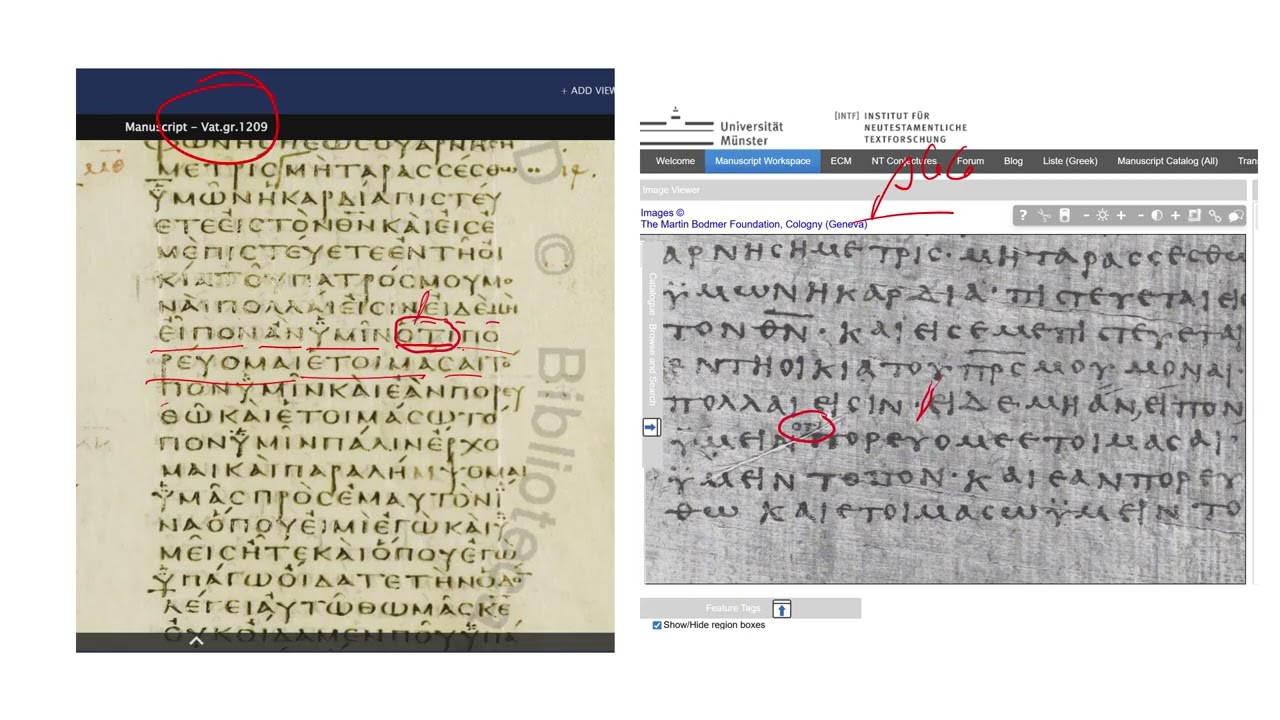 + ADD VIEW
Manuscript – Vat.gr.1209
ΜΕΤΡΙCΜΗΤΑΡΑCCΕCΘω
ΫΜΩΝΗΚΑΡΔΙΑΠΙCΤΕΥ
ΕΤΕΕΙCΤΟΝΘΝΚΑΙΕΙCΕ
ΜΕΠΙCΤΕΥΕΤΕΕΝΤΗΟΙ
ΚΙΑΤΟΥΠΑΤΡΟCΜΟΥΜΟ
ΝΑΙΠΟΛΛΑΙΕΙCΙΝΕΙΔΕΜΗ
ΕΙΠΟΝΑΝΫΜΙΝΟΤΙΠΟ
ΡΕΥΟΜΑΙΕΤΟΙΜΑCΑΙΤΟ
ΠΟΝΫΜΙΝΚΑΙΕΑΝΠΟΡΕΥ
ΘΩΚΑΙΕΤΟΙΜΑCΩΤΟ
ΠΟΝΫΜΙΝΠΑΛΙΝΕΡΧΟ
ΜΑΙΚΑΙΠΑΡΑΛΗΜΨΟΜΑΙ
ΫΜΑCΠΡΟCΕΜΑΥΤΟΝΙ
ΝΑΟΠΟΥΕΙΜΙΕΓΩΚΑΙΫ
ΜΕΙCΗΤΕΚΑΙΟΠΟΥΕΓΩ
ΫΠΑΓΩΟΙΔΑΤΕΤΗΝΟΔΟ
ΛΕΓΕΙΑΥΤΩΘΩΜΑCΚΕ
ΟΥΚΟΙΔΑΜΕΝΠΟΥΫΠΑ
D © Bibliotec
Universität
Münster
[INTF] INSTITUT FÜR
NEUTESTAMENTLICHE
TEXTFORSCHUNG
Welcome Manuscript Workspace ECM NT Conjectures Forum Blog Liste (Greek) Manuscript Catalog (All) Tran
Image Viewer
P66
Images ©
The Martin Bodmer Foundation, Cologny (Geneva)
Catalogue - Browse and Search
ΑΡΝΗCΗΜΕΤΡΙC·ΜΗΤΑΡΑCCΕCΘω
ΫΜωΝΗΚΑΡΔΙΑ·ΠΙCΤΕΥΕΤΑΙΕΙC
ΤΟΝΘΝ·ΚΑΙΕΙCΕΜΕΠΙCΤΕΥΕΤΑΙ
ΕΝΤΗΟΙΚΙΑΤΟΥΠΡCΜΟΥΜΟΝΑΙ·
ΠΟΛΛΑΙΕΙCΙΝ·ΕΙΔΕΜΗΑΝ,ΕΙΠΟΝ
οτι
ΫΜΕΙΝΠΟΡΕΥΟΜΕΕΤΟΙΜΑCΑΙ
ΫΜΕΙΝΤΟΠΟΝ·ΚΑΙΕΑΝΠΟΡΕΥ
ΘωΚΑΙΕΤΟΙΜΑCωΫΜΕΙΝΤΟ
Feature Tags
Show/Hide region boxes